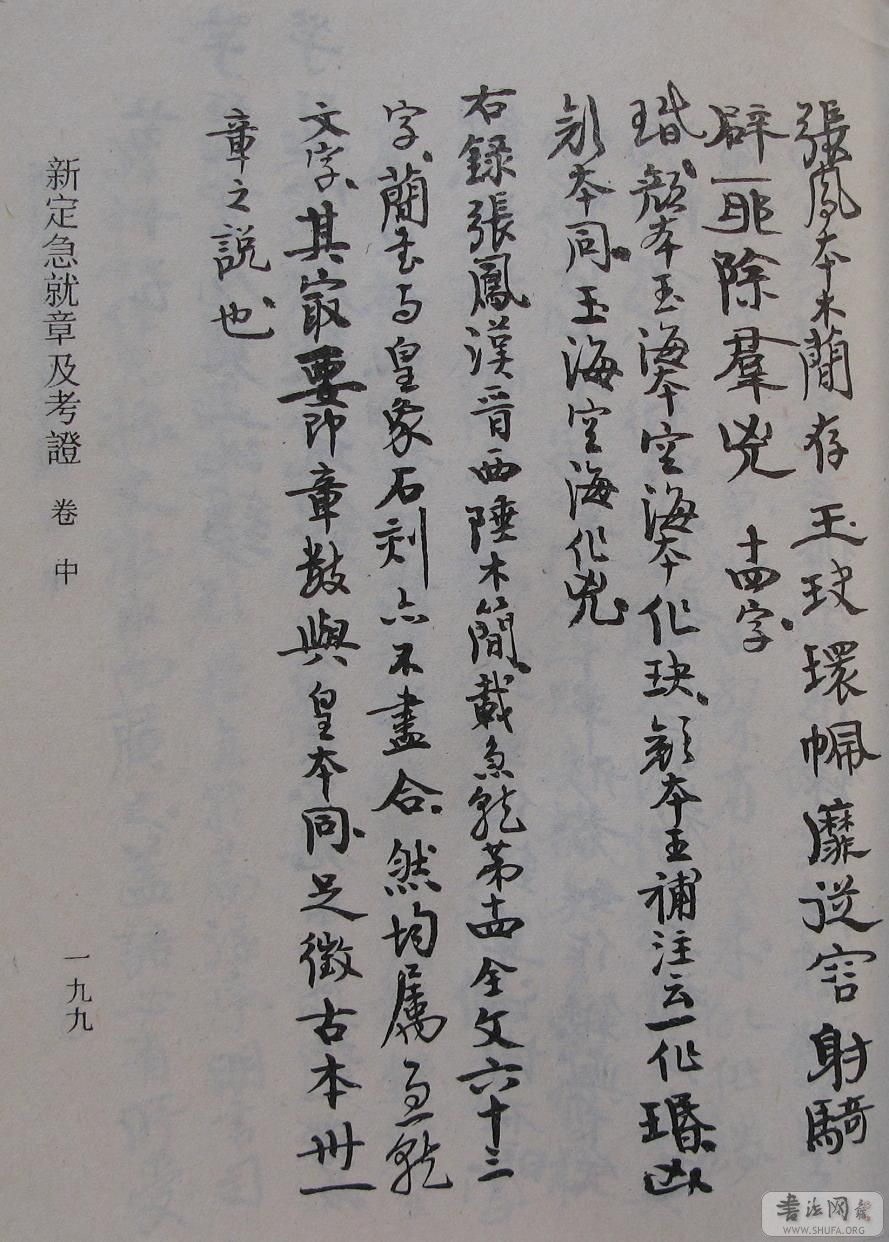 張鳳本木蕳存玉玦環佩靡從容射騎
辟耶除羣兇 十四字、
瑉、顏本玉海本空海本作玦、顏本王補注云一作琘、凶
顏本同、玉海空海作兇、
右録張鳳漢晋西陲木簡、載急就第十四全文六十三
字、蕳書与皇象石刻亦不盡合、然均屬急就
文字、其冣要即章數與皇本同、足徵古本卅一
章之說也、
新定急就章及考證 卷中
一九九
書法网
WWW.SHUFA.ORG